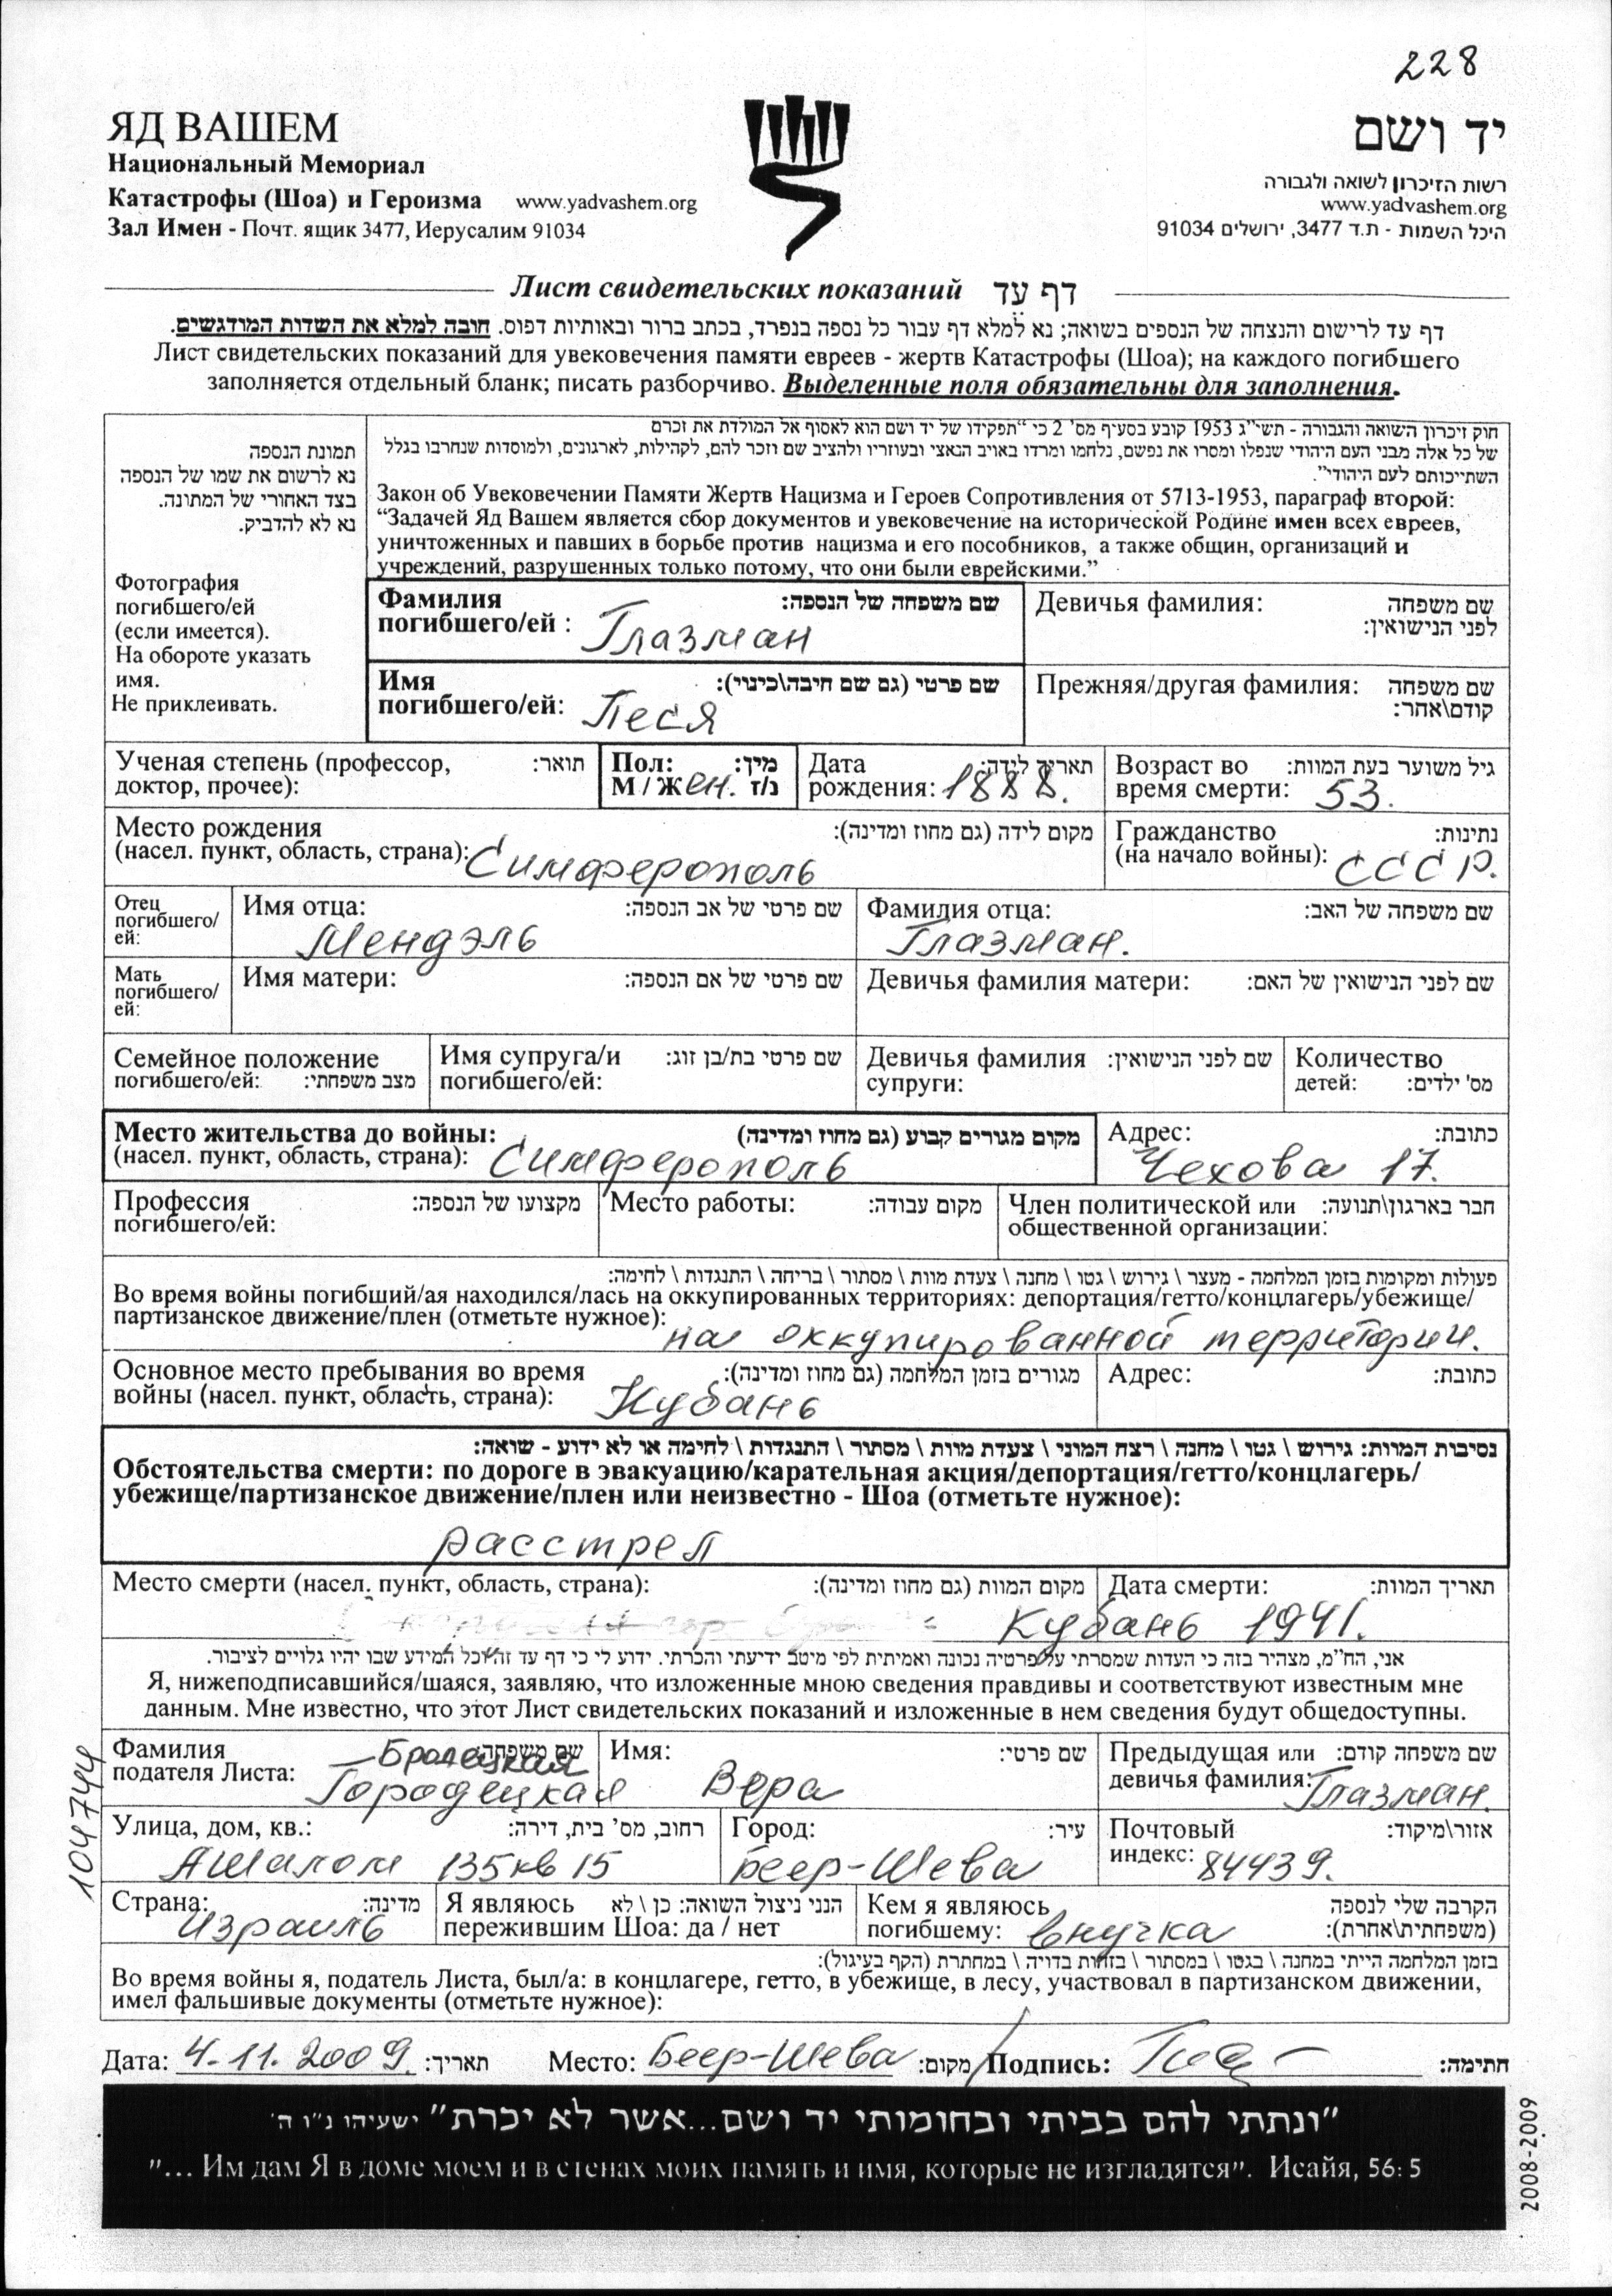 228
ЯД ВАШЕМ
Национальный Мемориал
Катастрофы (Шоа) и Героизма www.yadvashem.org
Зал Имен - Почт. ящик 3477, Иерусалим 91034
יד ושם
רשות הזיכרון לשואה ולגבורה
www.yadvashem.org
היכל השמות - ת.ד 3477, ירושלים 91034
Лист свидетельских показаний דף עֵד
דף עד לרישום והנצחה של הנספים בשואה; נא למלא דף עבור כל נספה בנפרד, בכתב ברור ובאותיות דפוס. חובה למלא את השדות המודגשים.
Лист свидетельских показаний для увековечения памяти евреев - жертв Катастрофы (Шоа); на каждого погибшего
заполняется отдельный бланк; писать разборчиво. Выделенные поля обязательны для заполнения.
תמונת הנספה
נא לרשום את שמו של הנספה
בצד האחורי של המתונה.
נא לא להדביק.
Фотография
погибшего/ей
(если имеется).
На обороте указать
имя.
Не приклеивать.
חוק זיכרון השואה והגבורה - תשי"ג 1953 קובע בסעיף מס' 2 כי "תפקידו של יד ושם הוא לאסוף אל המולדת את זכרם
של כל אלה מבני העם היהודי שנפלו ומסרו את נפשם, נלחמו ומרדו באויב הנאצי ובעוזריו ולהציב שם וזכר להם, לקהילות, לארגונים, ולמוסדות שנחרבו בגלל
השתייכותם לעם היהודי".
Закон об Увековечении Памяти Жертв Нацизма и Героев Сопротивления от 5713-1953, параграф второй:
“Задачей Яд Вашем является сбор документов и увековечение на исторической Родине имен всех евреев,
уничтоженных и павших в борьбе против нацизма и его пособников, а также общин, организаций и
учреждений, разрушенных только потому, что они были еврейскими.”
Фамилия שם משפחה של הנספה:
погибшего/ей : Глазман
Девичья фамилия: שם משפחה
לפני הנישואין:
Имя שם פרטי (גם שם חיבה\כינוי):
погибшего/ей: Песя
Прежняя/другая фамилия: שם משפחה
קודם\אחר:
Ученая степень (профессор, תואר:
доктор, прочее):
Пол: מין:
М / Жен. נ/ז
Дата תאריך לידה:
рождения: 1888.
Возраст во גיל משוער בעת המוות:
время смерти: 53.
Место рождения מקום לידה (גם מחוז ומדינה):
(насел. пункт, область, страна): Симферополь
Гражданство נתינות:
(на начало войны): СССР.
Отец
погибшего/
ей:
Имя отца: שם פרטי של אב הנספה:
Мендэль
Фамилия отца: שם משפחה של האב:
Глазман.
Мать
погибшего/
ей:
Имя матери: שם פרטי של אם הנספה:
Девичья фамилия матери: שם לפני הנישואין של האם:
Семейное положение
погибшего/ей: מצב משפחתי:
Имя супруга/и שם פרטי בת/בן זוג:
погибшего/ей:
Девичья фамилия שם לפני הנישואין:
супруги:
Количество
детей: מס' ילדים:
Место жительства до войны: מקום מגורים קבוע (גם מחוז ומדינה)
(насел. пункт, область, страна): Симферополь
Адрес: כתובת:
Чехова 17.
Профессия מקצועו של הנספה:
погибшего/ей:
Место работы: מקום עבודה:
Член политической или חבר בארגון\תנועה:
общественной организации:
פעולות ומקומות בזמן המלחמה - מעצר \ גירוש \ גטו \ מחנה \ צעדת מוות \ מסתור \ בריחה \ התנגדות \ לחימה:
Во время войны погибший/ая находился/лась на оккупированных территориях: депортация/гетто/концлагерь/убежище/
партизанское движение/плен (отметьте нужное): на оккупированной территории.
Основное место пребывания во время מגורים בזמן המלחמה (גם מחוז ומדינה):
войны (насел. пункт, область, страна): Кубань
Адрес: כתובת:
נסיבות המוות: גירוש \ גטו \ מחנה \ רצח המוני \ צעדת מוות \ מסתור \ התנגדות \ לחימה או לא ידוע - שואה:
Обстоятельства смерти: по дороге в эвакуацию/карательная акция/депортация/гетто/концлагерь/
убежище/партизанское движение/плен или неизвестно - Шоа (отметьте нужное):
расстрел
Место смерти (насел. пункт, область, страна): מקום המוות (גם מחוז ומדינה):
Дата смерти: תאריך המוות:
Кубань 1941.
אני, הח"מ, מצהיר בזה כי העדות שמסרתי על פרטיה נכונה ואמיתית לפי מיטב ידיעתי והכרתי. ידוע לי כי דף עד זה וכל המידע שבו יהיו גלויים לציבור.
Я, нижеподписавшийся/шаяся, заявляю, что изложенные мною сведения правдивы и соответствуют известным мне
данным. Мне известно, что этот Лист свидетельских показаний и изложенные в нем сведения будут общедоступны.
Фамилия שם משפחה: Бродецкая
подателя Листа: Городецкая
Имя: שם פרטי:
Вера
Предыдущая или שם משפחה קודם:
девичья фамилия: Глазман.
Улица, дом, кв.: רחוב, מס' בית, דירה:
Ашалом 135 кв 15
Город: עיר:
Беер-Шева
Почтовый אזור\מיקוד:
индекс: 84439.
Страна: מדינה:
Израиль
Я являюсь הנני ניצול השואה: כן \ לא
пережившим Шоа: да / нет
Кем я являюсь הקרבה שלי לנספה
погибшему: внучка (משפחתית\אחרת):
בזמן המלחמה הייתי במחנה \ בגטו \ במסתור \ בזהות בדויה \ במחתרת (הקף בעיגול):
Во время войны я, податель Листа, был/а: в концлагере, гетто, в убежище, в лесу, участвовал в партизанском движении,
имел фальшивые документы (отметьте нужное):
Дата: 4.11.2009. תאריך: Место: Беер-Шева מקום: Подпись: חתימה:
"ונתתי להם בביתי ובחומותי יד ושם...אשר לא יכרת" ישעיהו נ"ו ה'
"... Им дам Я в доме моем и в стенах моих память и имя, которые не изгладятся". Исайя, 56: 5
104744
2008-2009